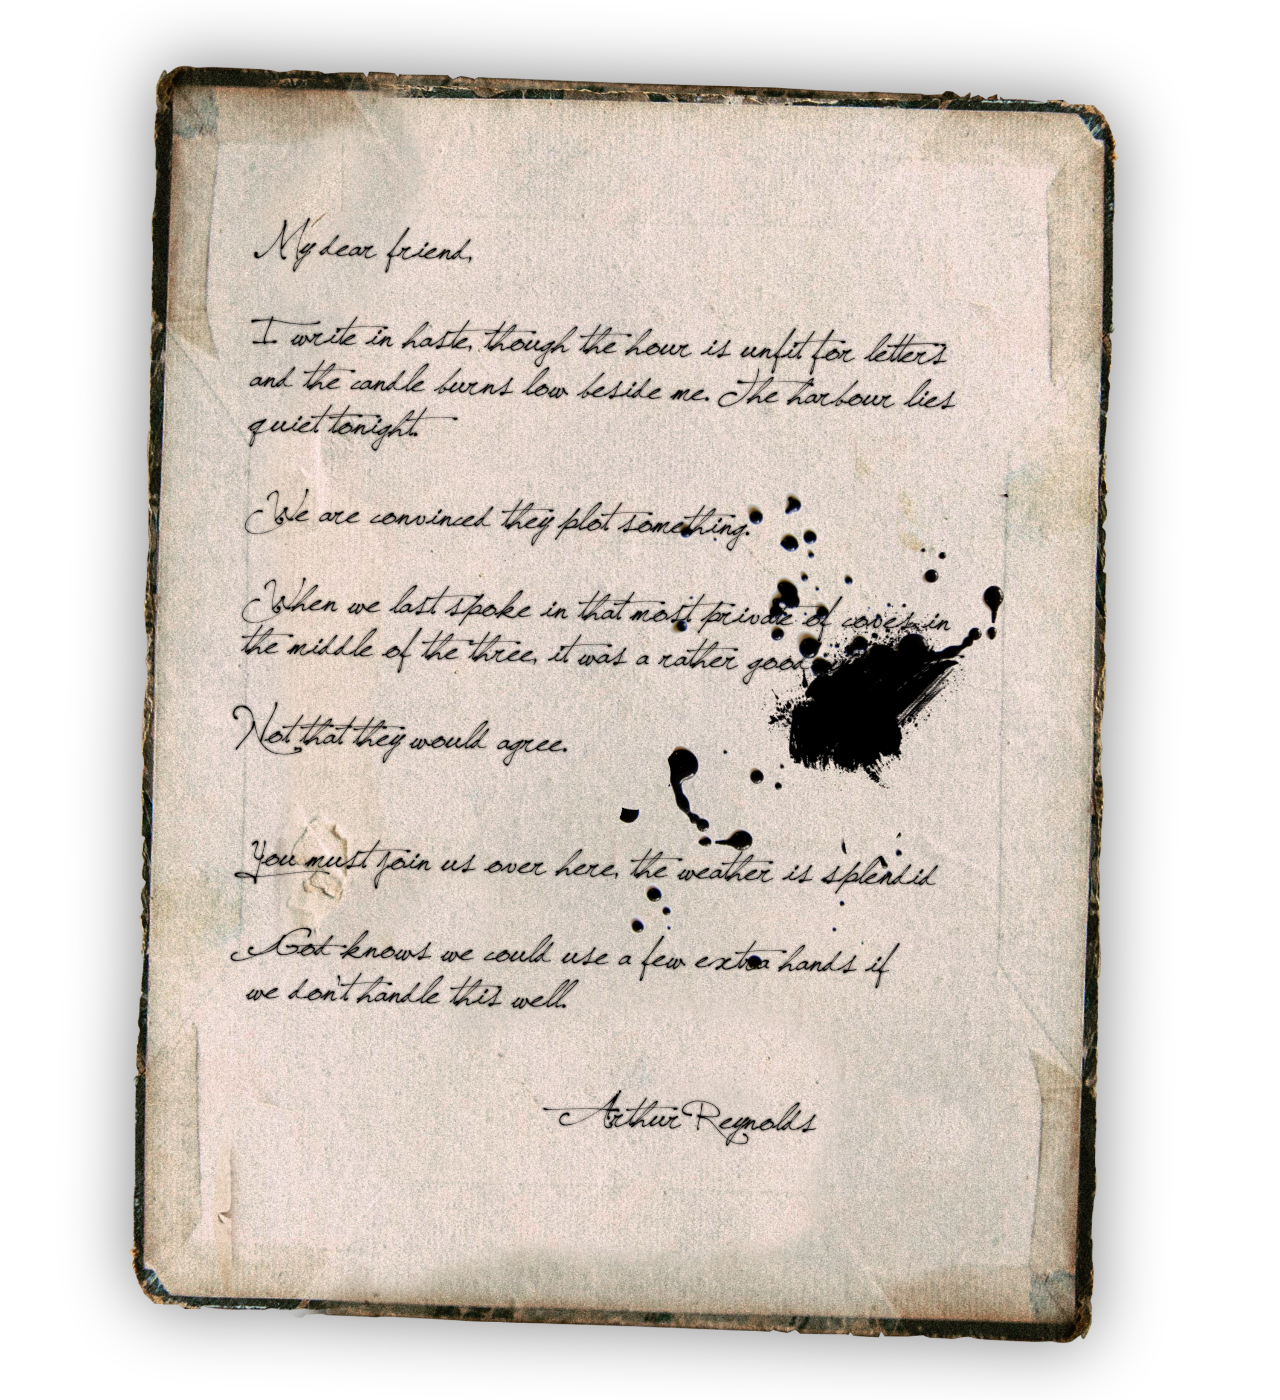 My dear friend,
I write in haste, though the hour is unfit for letters
and the candle burns low beside me. The harbour lies
quiet tonight.
We are convinced they plot something.
When we last spoke in that most private of coves in
the middle of the three, it was a rather good
Not that they would agree.
You must join us over here, the weather is splendid
God knows we could use a few extra hands if
we don't handle this well.
Arthur Reynolds